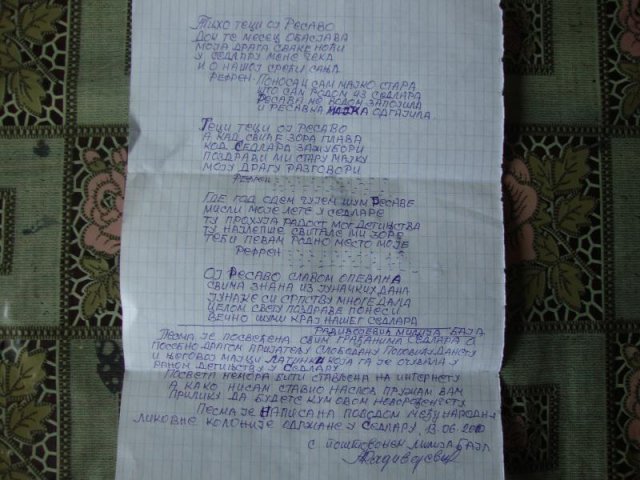 Тихо теци ој Ресаво
Док те месец обасјава
Моја драга сваке ноћи
У Седлару мене чека
И о нашој срећи сања
Рефрен Поносан сам мајко стара
што сам родом из Седлара
Ресава ме водом запојила
и Ресавка мајка одгајила
Теци теци ој Ресаво
А кад сване зора плава
код Седлара зажубори
поздрави ми стару мајку
моју драгу разговори
Рефрен
Где год одем чујем шум Ресаве
мисли моје лете у Седларе
ту прохуја радост мог детињства
ту најлепше свитале ми зоре
теби певам родно место моје
Рефрен
Ој Ресаво славом опевана
свима знана из јуначких дана
јунаке си српству многе дала
целом свету поздраве понеси
вечно шуми крај нашег Седлара
Радивојевић Милија Баја
Песма је посвећена свим грађанима Седлара а
посебно драгом пријатељу Слободану Поповићу
и његовој мајци Латинки која га је одгајила у
раном детињству у Седлару
Посвета немора бити стављена на интернету
А како нисам ставио наслов пружам вам
прилику да будете кум овом новорођенчету
Песма је написана поводом међународне
ликовне колоније одржане у Седлару, 13.06.2010
с поштовањем Милија Баја
Радивојевић